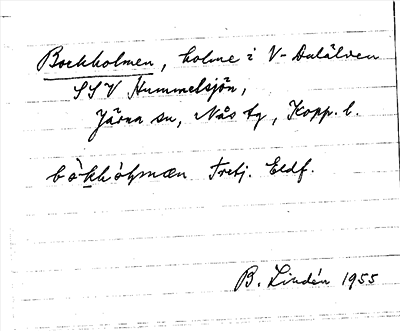 Bockholmen, holme i V-Dalälven
SSV Hummelsjön,
Järna sn, Nås tg, Kopp. l.
bòkhòɭmæn Tretj. Eldf.
B. Lindén 1955